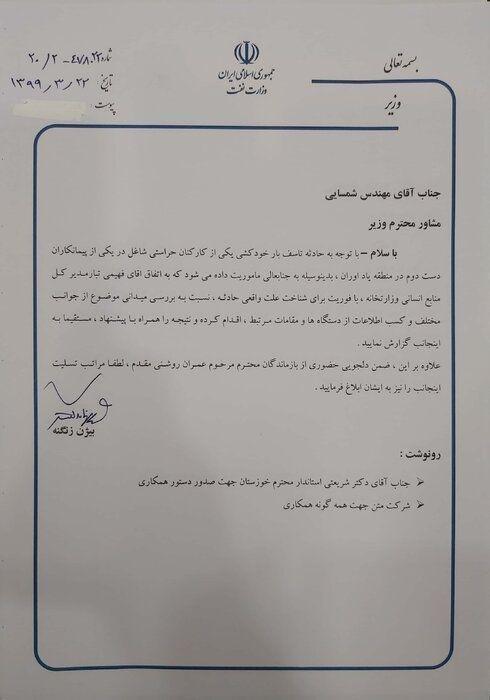 بسمه تعالی
جمهوری اسلامی ایران
وزارت نفت
وزیر
شماره ۲۰/۲-۴۷۸۰۲۲
تاریخ: ۱۳۹۹/۳/۲۲
پیوست:
جناب آقای مهندس شمسایی
مشاور محترم وزیر
با سلام – با توجه به حادثه تاسف بار خودکشی یکی از کارکنان حراستی شاغل در یکی از پیمانکاران
دست دوم در منطقه یاد اوران ، بدینوسیله به جنابعالی ماموریت داده می شود که به اتفاق اقای فهیمی نیازمدیر کل
منابع انسانی وزارتخانه ، با فوریت برای شناخت علت واقعی حادثه ، نسبت به بررسی میدانی موضوع از جوانب
مختلف و کسب اطلاعات از دستگاه ها و مقامات مرتبط ، اقدام کرده و نتیجه را همراه با پیشنهاد ، مستقیما به
اینجانب گزارش نمایید .
علاوه بر این ، ضمن دلجویی حضوری از بازماندگان محترم مرحوم عمران روشنی مقدم ، لطفا مراتب تسلیت
اینجانب را نیز به ایشان ابلاغ فرمایید .
بیژن زنگنه
رونوشت :
جناب آقای دکتر شریعتی استاندار محترم خوزستان جهت صدور دستور همکاری
شرکت متن جهت همه گونه همکاری